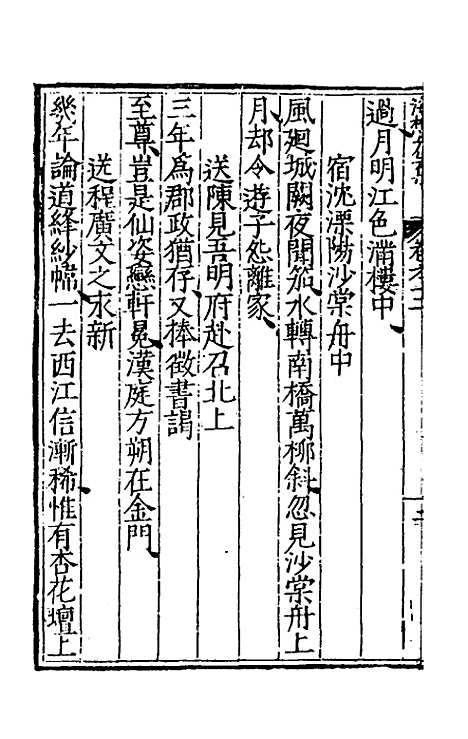 過月明江色滿樓中
宿沈溧陽沙棠舟中
風廻城闕夜聞笳水轉南橋萬柳斜忽見沙棠舟上
月却令遊子怨離家
送陳見吾明府赴召北上
三年為郡政猶存又捧徵書謁
至尊豈是仙姿戀軒冕漢庭方朔在金門
送程廣文之永新
幾年論道絳紗幃一去西江信漸稀惟有杏花壇上